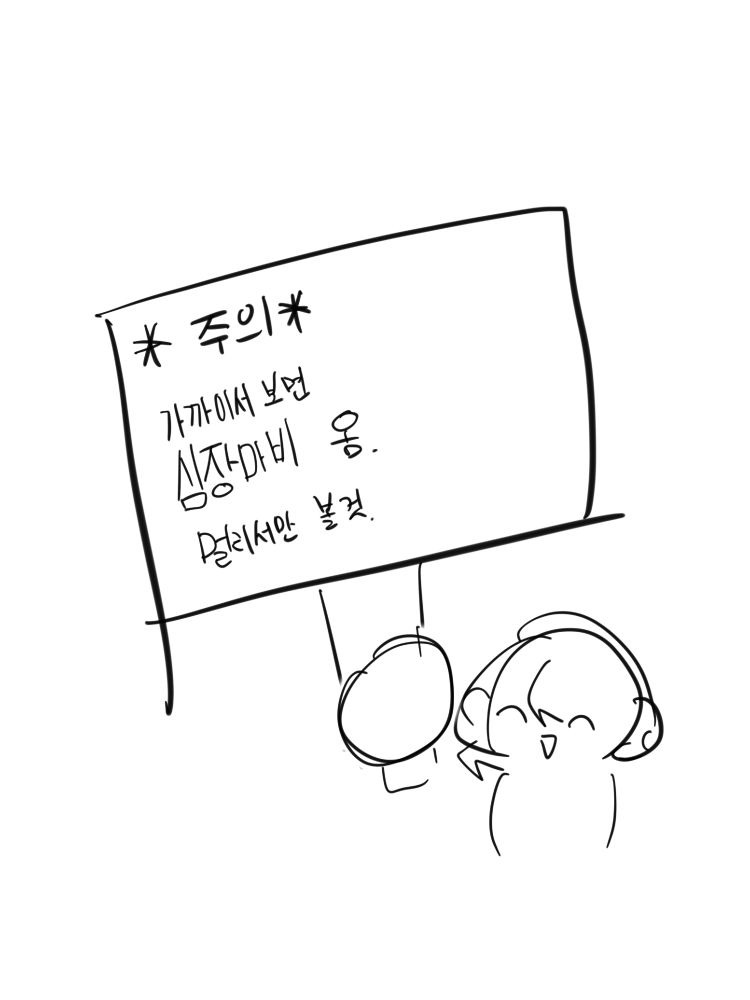 * 주의*
가까이서 보면
심장마비 옴.
멀리서만 볼것.